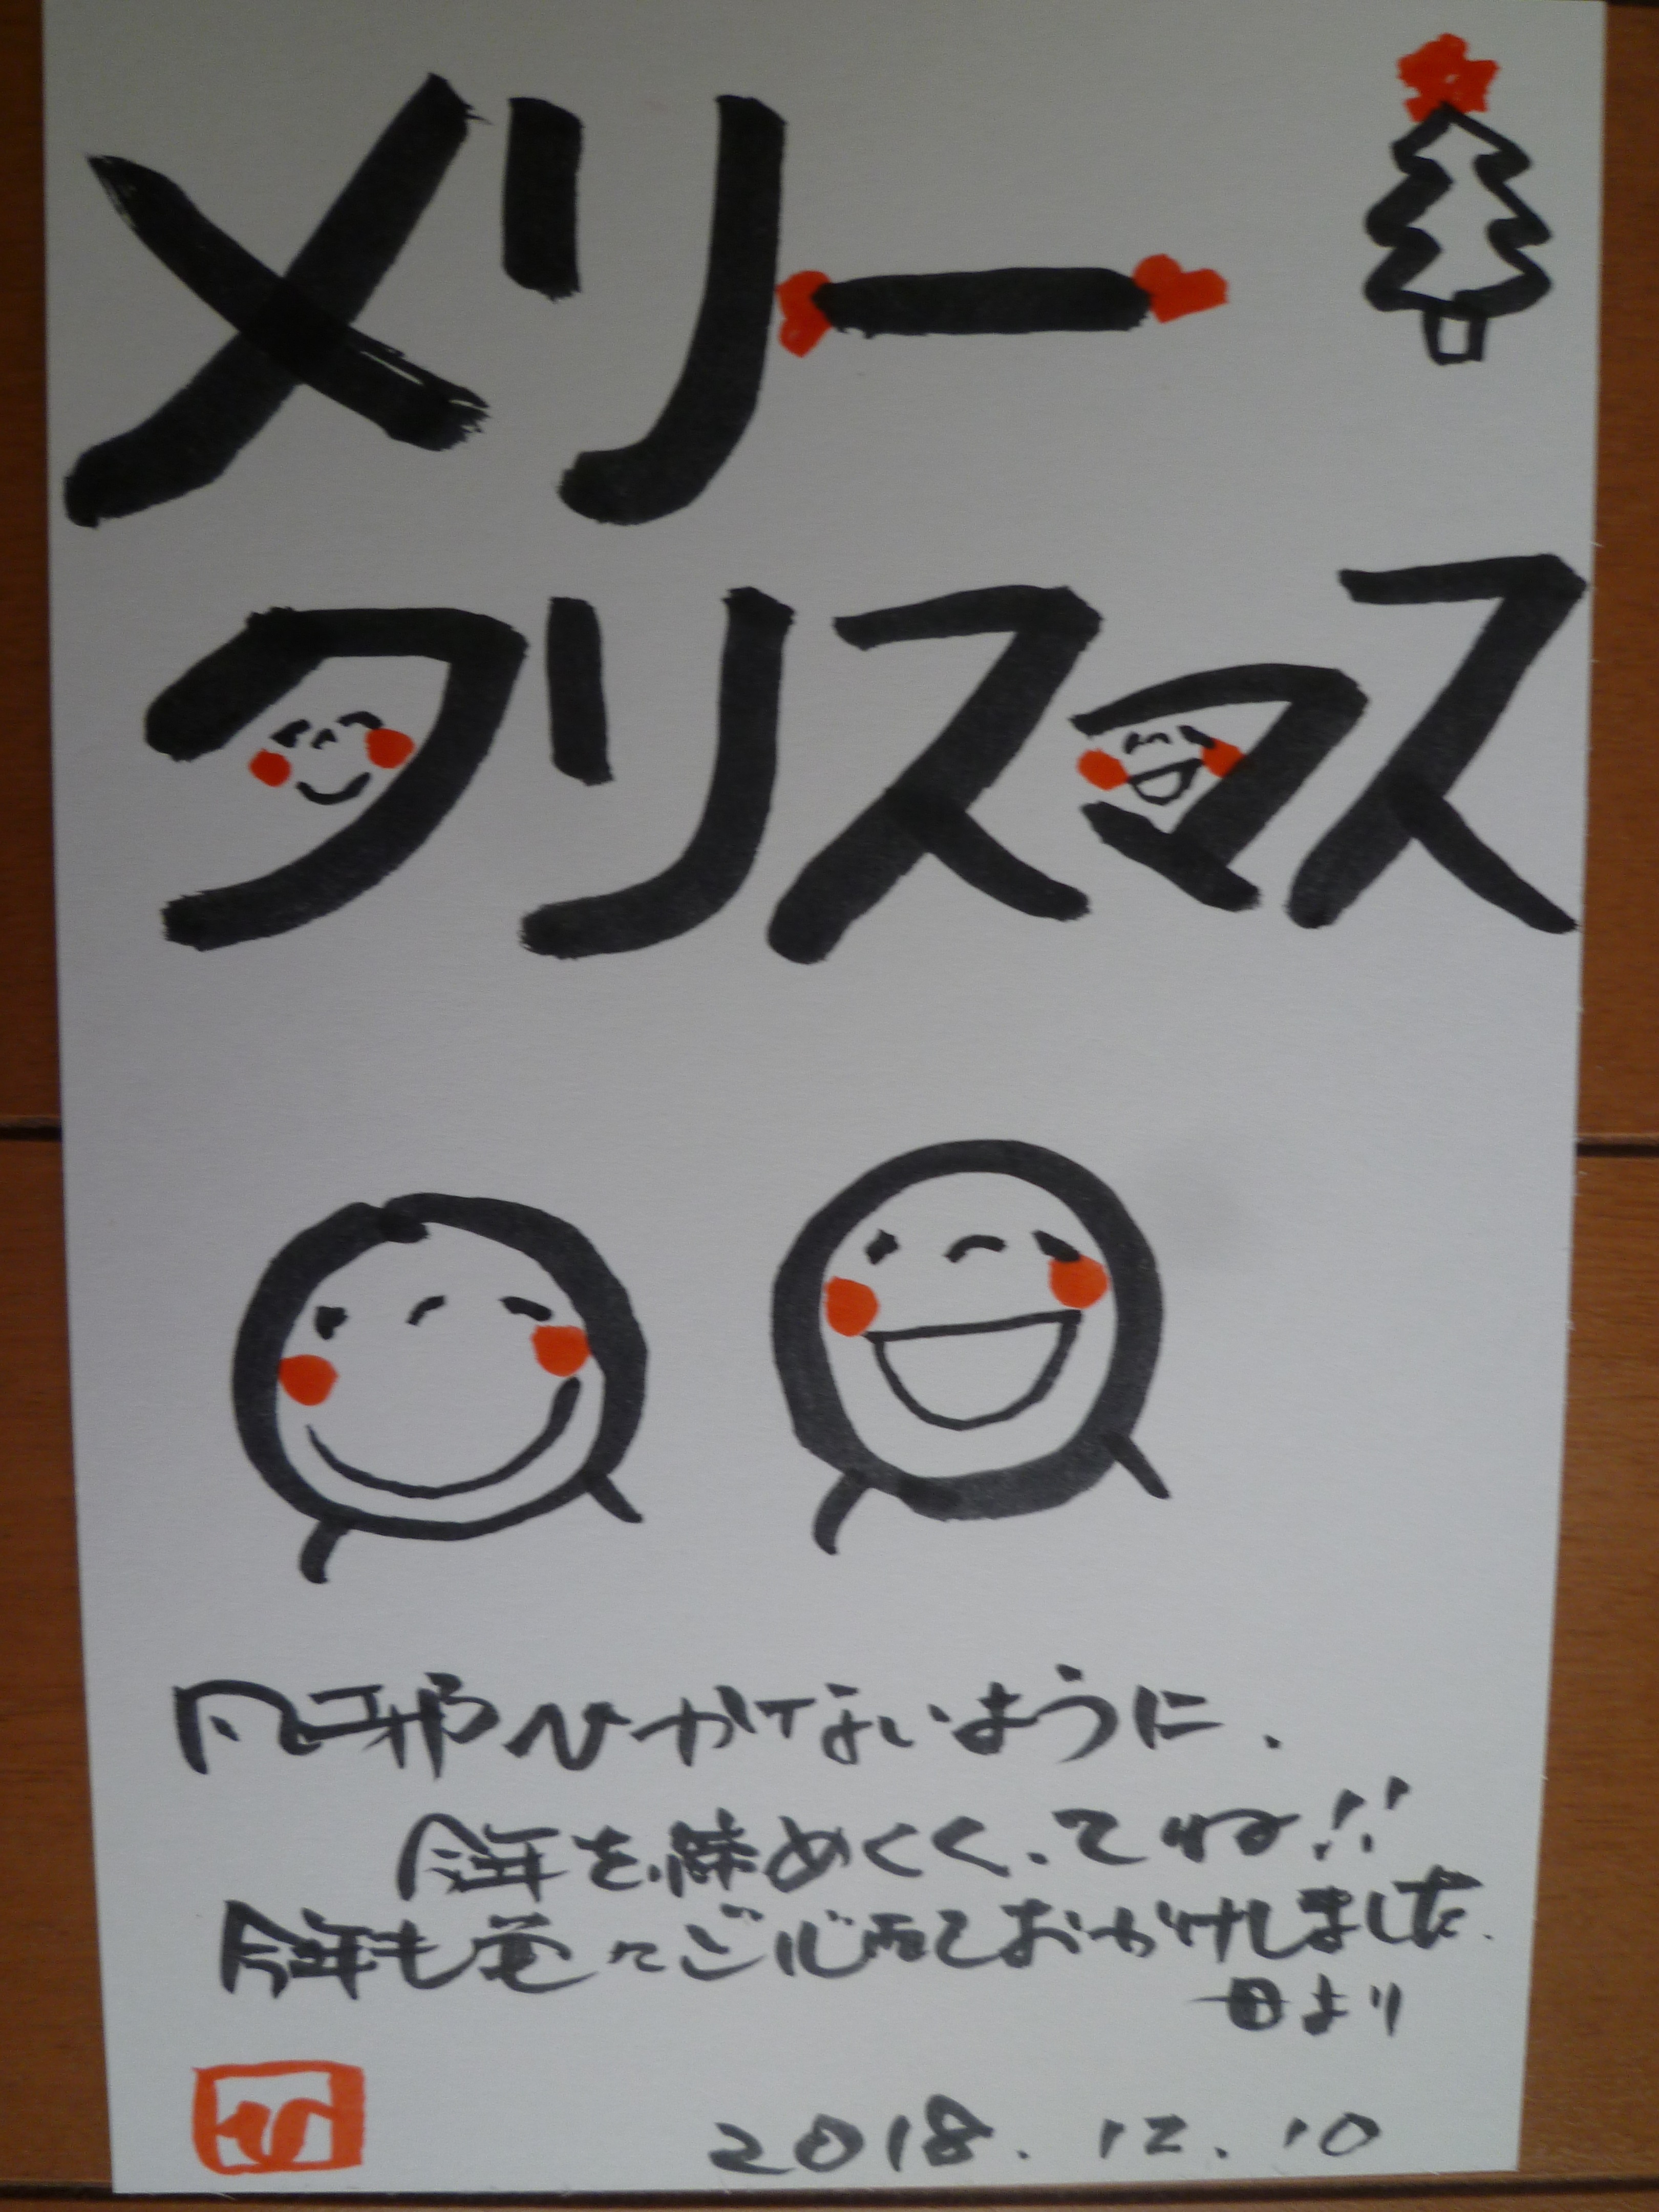 メリー
クリスマス
風邪ひかないように.
今年を締めくくってね!!
今年も色々ご心配おかけしました.
母より
2018.12.10